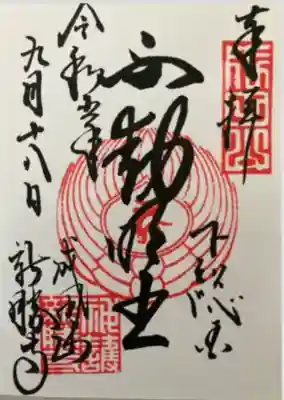 奉拝
下総國
不動明王
令和元年
九月十八日
成田山
新勝寺